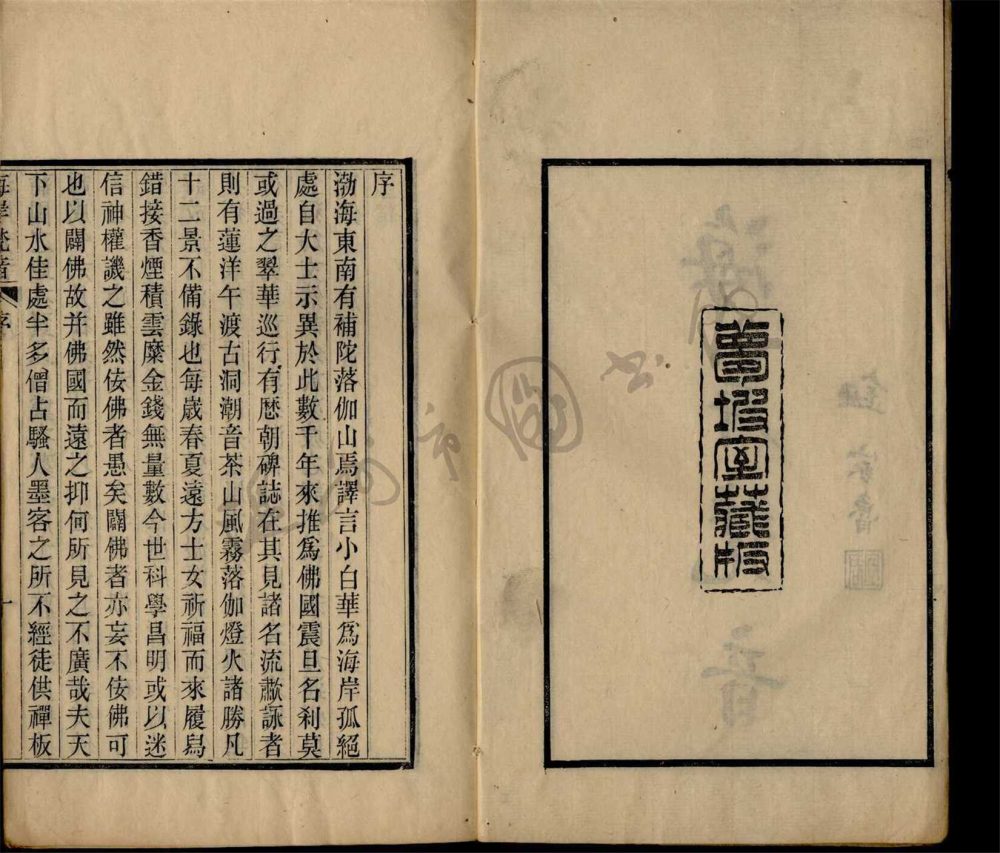 夢坡室藏板
序
渤海東南有補陀落伽山焉譯言小白華爲海岸孤絕
處自大士示異於此數千年來推爲佛國震旦名刹莫
或過之翠華巡行有厯朝碑誌在其見諸名流歗詠者
則有蓮洋午渡古洞潮音茶山風霧落伽燈火諸勝凡
十二景不備錄也每歲春夏遠方士女祈福而來履舄
錯接香煙積雲糜金錢無量數今世科學昌明或以迷
信神權譏之雖然佞佛者愚矣闢佛者亦妄不佞佛可
也以闢佛故并佛國而遠之抑何所見之不廣哉夫天
下山水佳處半多僧占騷人墨客之所不經徒供禪板
海岸梵音 序 一